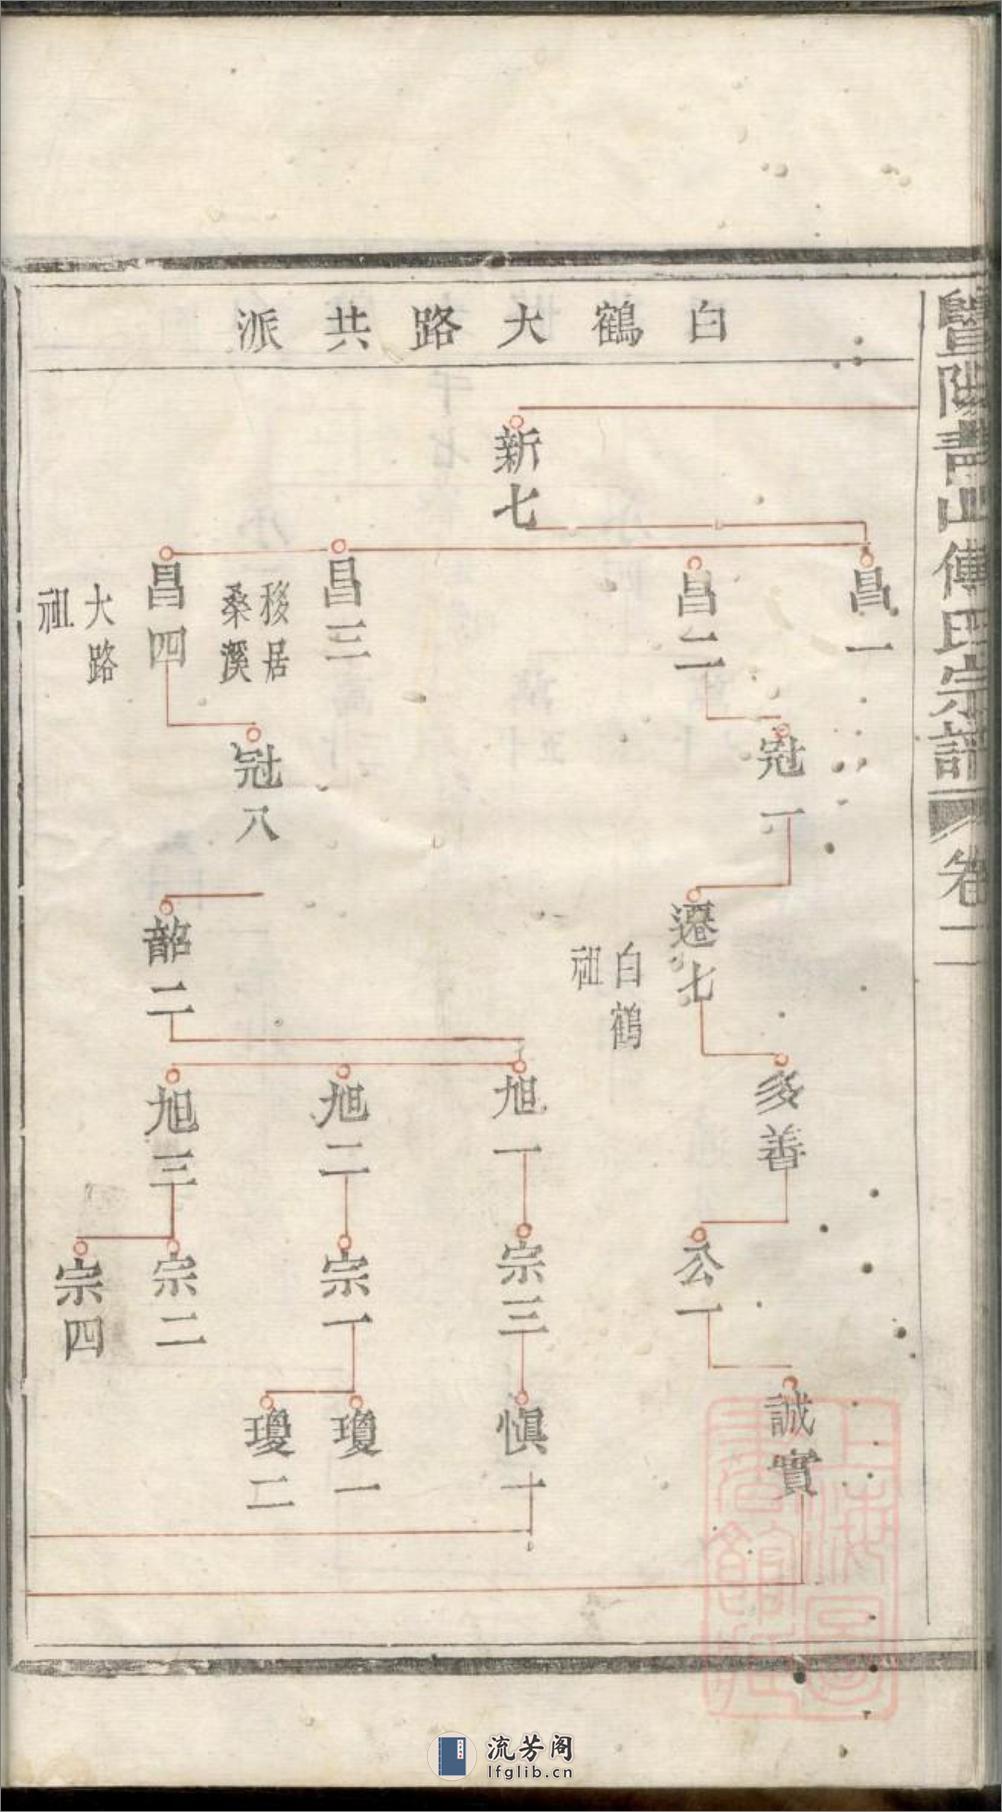 白鶴大路共派
暨陽書山傅氏宗譜
卷二
新七
昌一
昌二
昌三
移居
桑溪
昌四
大路
祖
冠一
冠八
遷七
白鶴
祖
韶二
多善
旭一
旭二
旭三
公一
宗三
宗一
宗二
宗四
誠實
慎一
瓊一
瓊二
上海圖
書館藏
流芳阁
lfglib.cn